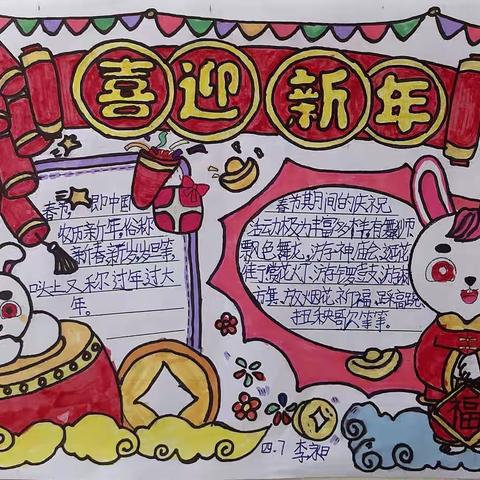 喜迎新年
春节,即中国
农历新年,俗称
新春、新岁、岁旦等,
口头上又称过年过大
年。
春节期间的庆祝
活动极为丰富多样,有舞狮
飘色舞龙、游神、庙会、逛花
街、赏花灯、游锣鼓、游标
旗、放烟花、祈福、踩高跷、
扭秧歌等等。
福
四.7 李昶